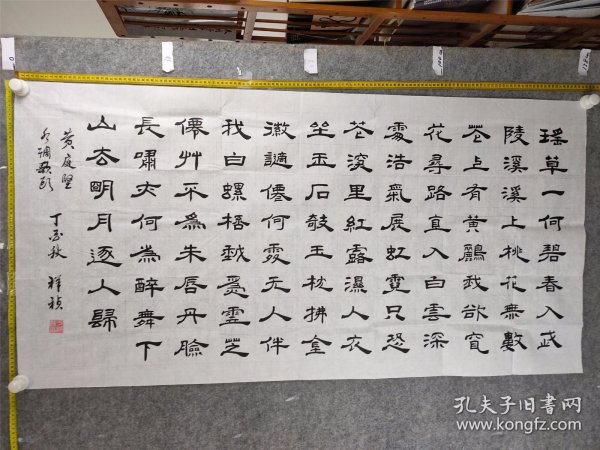 瑤草一何碧春入武
陵溪溪上桃花無數
花上有黃鸝我欲穿
花尋路直入白雲深
處浩氣展虹霓只恐
花深里紅露濕人衣
坐玉石敧玉枕拂金
徽謫僊何處无人伴
我白螺桮我爲靈芝
僊艸不爲朱唇丹臉
長嘯亦何爲醉舞下
山去明月逐人歸
黃庭堅
水調歌頭
丁亥秋 祥禎
孔夫子旧书网
www.kongfz.com